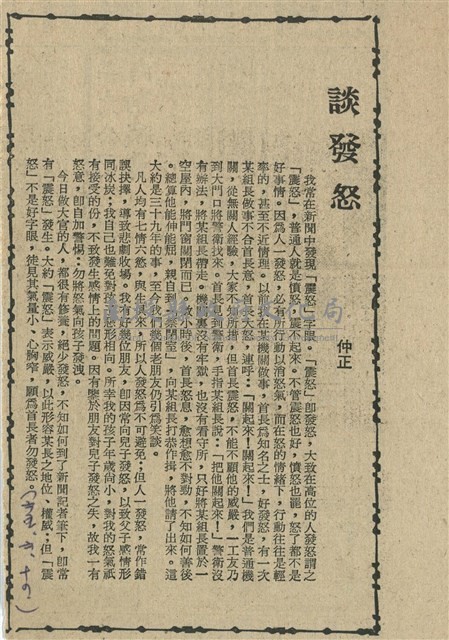 談發怒
仲正
我常在新聞中發現「震怒」字眼。「震怒」卽發怒，大致在高位的人發怒謂之
「震怒」，普通人就是憤怒而震不起來。不管震怒也好，憤怒也罷，怒了都不是
好事情。因爲人一發怒，必有所行動以消怒氣，而在怒的情緒下，行動往往是輕
率的，甚至不近情理。以前我在某機關做事，首長爲知名之士，好發怒，有一次
某組長做事不合首長意，首長大怒，連呼：「關起來！關起來！」我們是普通機
關，從無關人經驗，大家不知所措，但首長震怒，不能不顧他的威嚴，一工友乃
到大門口將警衛找來。首長見到警衛，手指某組長說：「把他關起來！」警衛沒
有辦法，將某組長帶走。機關裏沒有牢獄，也沒有看守所，只好將某組長置於一
空屋內，將門窗關閉而已。數小時後，首長怒息，愈想愈不對勁，不知如何善後
。總算他能伸能屈，親自到「禁閉室」，向某組長打恭作揖，將他請了出來。這
大約是三十九年的事，至今我們幾個老朋友仍引爲笑談。
凡人均有七情六慾，與生俱來，所以人發怒爲不可避免；但人一發怒，常作錯
誤抉擇，導致悲劇收場。我有好幾位朋友，卽因常向兒子發怒，以致父子感情形
同冰炭；我自己也難免對孩子怒形相向。所幸我的孩子年歲尙小，對我的怒氣祇
有接受的份，不致發生感情上的問題。因有鑒於朋友對兒子發怒之失，故我一有
怒意，卽自加警惕：勿將怒氣向孩子發洩。
今日做大官的人，都很有修養，絕少發怒，不知如何到了新聞記者筆下，卽常
有「震怒」發生。大約「震怒」表示威嚴，以此形容某長之地位、權威；但「震
怒」不是好字眼，徒見其氣量小、心胸窄，願爲首長者勿發怒。